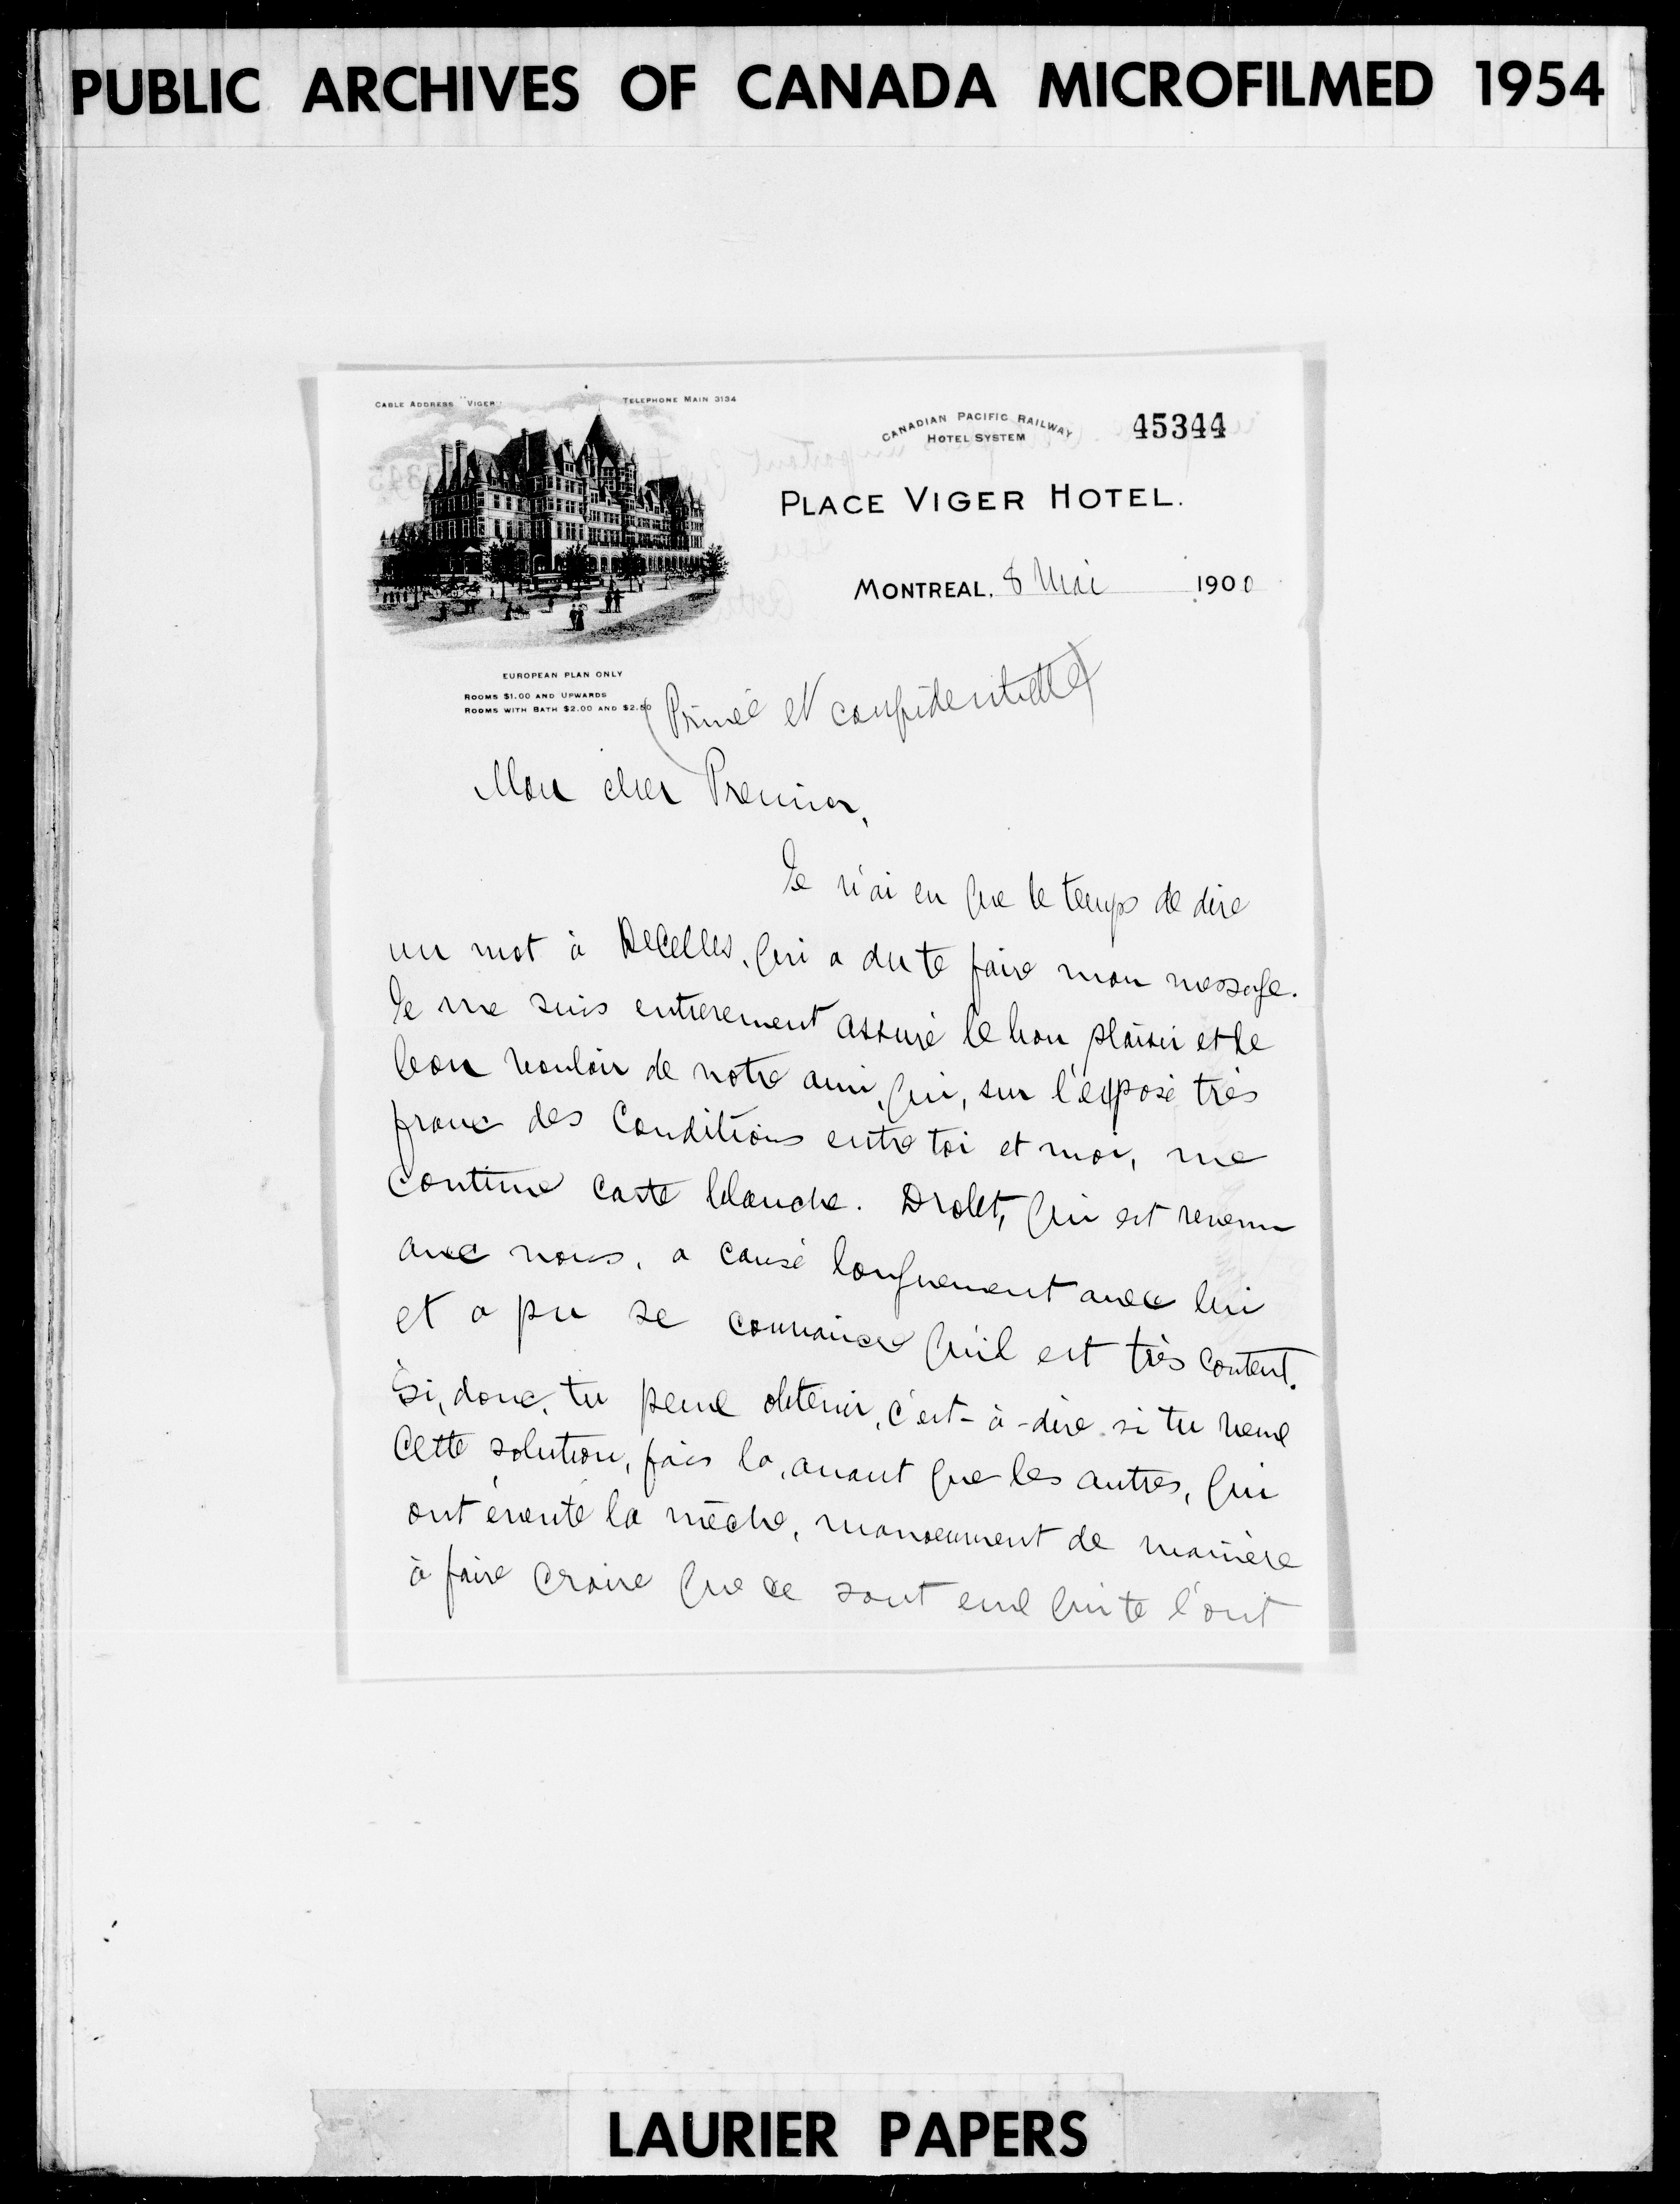 PUBLIC ARCHIVES OF CANADA MICROFILMED 1954
CABLE ADDRESS "VIGER"
TELEPHONE MAIN 3134
CANADIAN PACIFIC RAILWAY
HOTEL SYSTEM
45344
PLACE VIGER HOTEL.
MONTREAL, 8 Mai 1900
EUROPEAN PLAN ONLY
ROOMS $1.00 AND UPWARDS
ROOMS WITH BATH $2.00 AND $2.50
(Privée et confidentielle)
Mon cher Premier,
Je n'ai eu que le temps de dire
un mot à DeCelles, qui a du te faire mon message.
Je me suis entierement assuré le bon plaisir et le
bon vouloir de notre ami, qui, sur l'exposé très
franc des conditions entre toi et moi, me
continue carte blanche. Drolet, qui est revenu
avec nous, a causé longuement avec lui
et a pu se convaincre qu'il est très content.
Si, donc, tu peux obtenir, c'est-à-dire si tu veux
cette solution, fais la, avant que les autres, qui
ont éventé la mèche, manoeuvrent de manière
à faire croire que ce sont eux qui te l'ont
LAURIER PAPERS